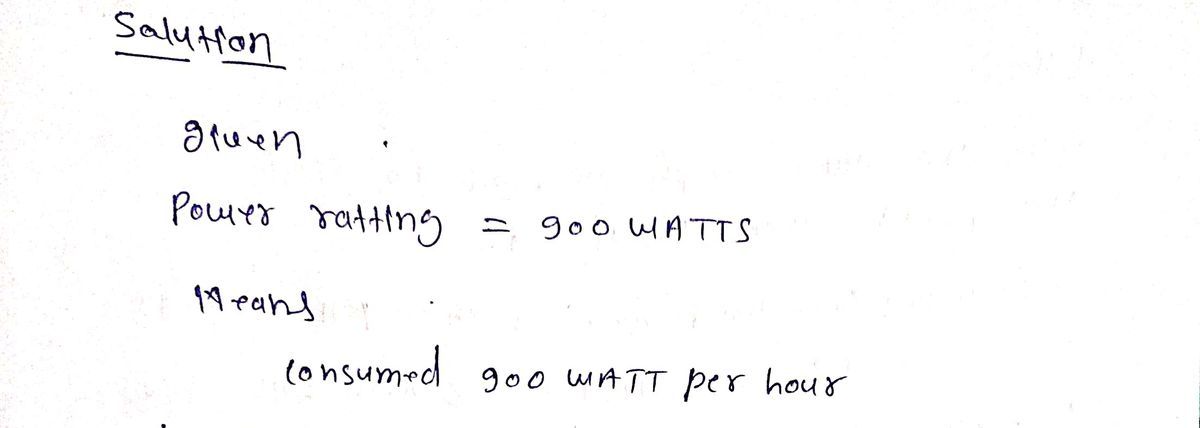 Solution
given
Power ratting = 900 WATTS
Means
Consumed 900 WATT per hour